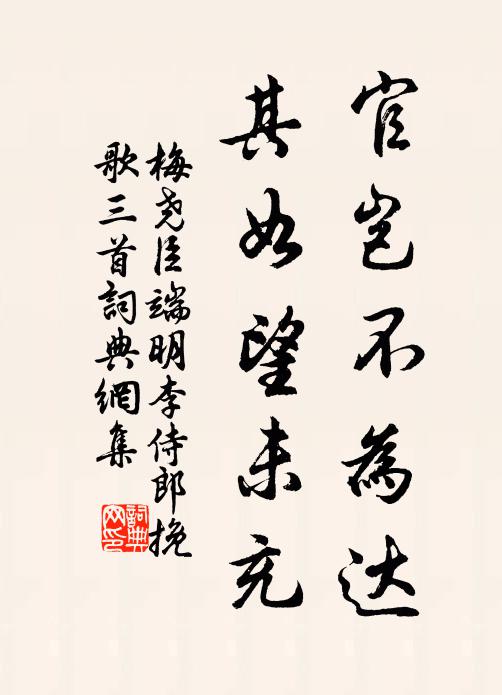 官岂不为达
其如望未充
梅尧臣端明李侍郎挽
歌三首詞典網集
詞典
网印